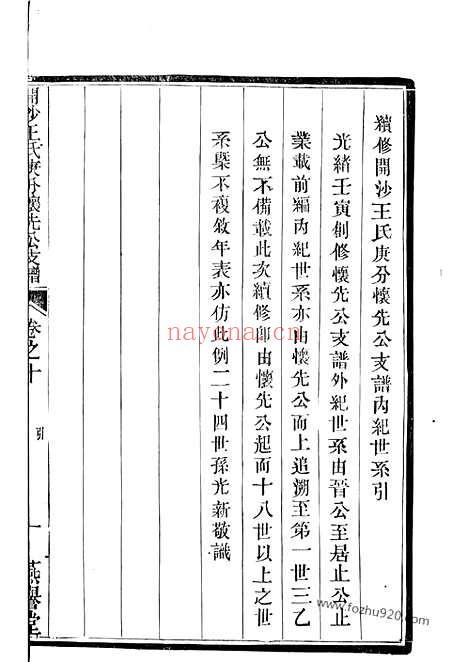 續修開沙王氏庚分懷先公支譜內紀世系引
光緒壬寅創修懷先公支譜外紀世系由晉公至居止公止
業載前編內紀世系亦由懷先公而上追溯至第一世三乙
公無不備載此次續修即由懷先公起而十八世以上之世
系槩不複敘年表亦仿此例二十四世孫光新敬識
開沙王氏庚分懷先公支譜
卷之十
引
一
燕譽堂
nayona.cn
www.fozhu920.com